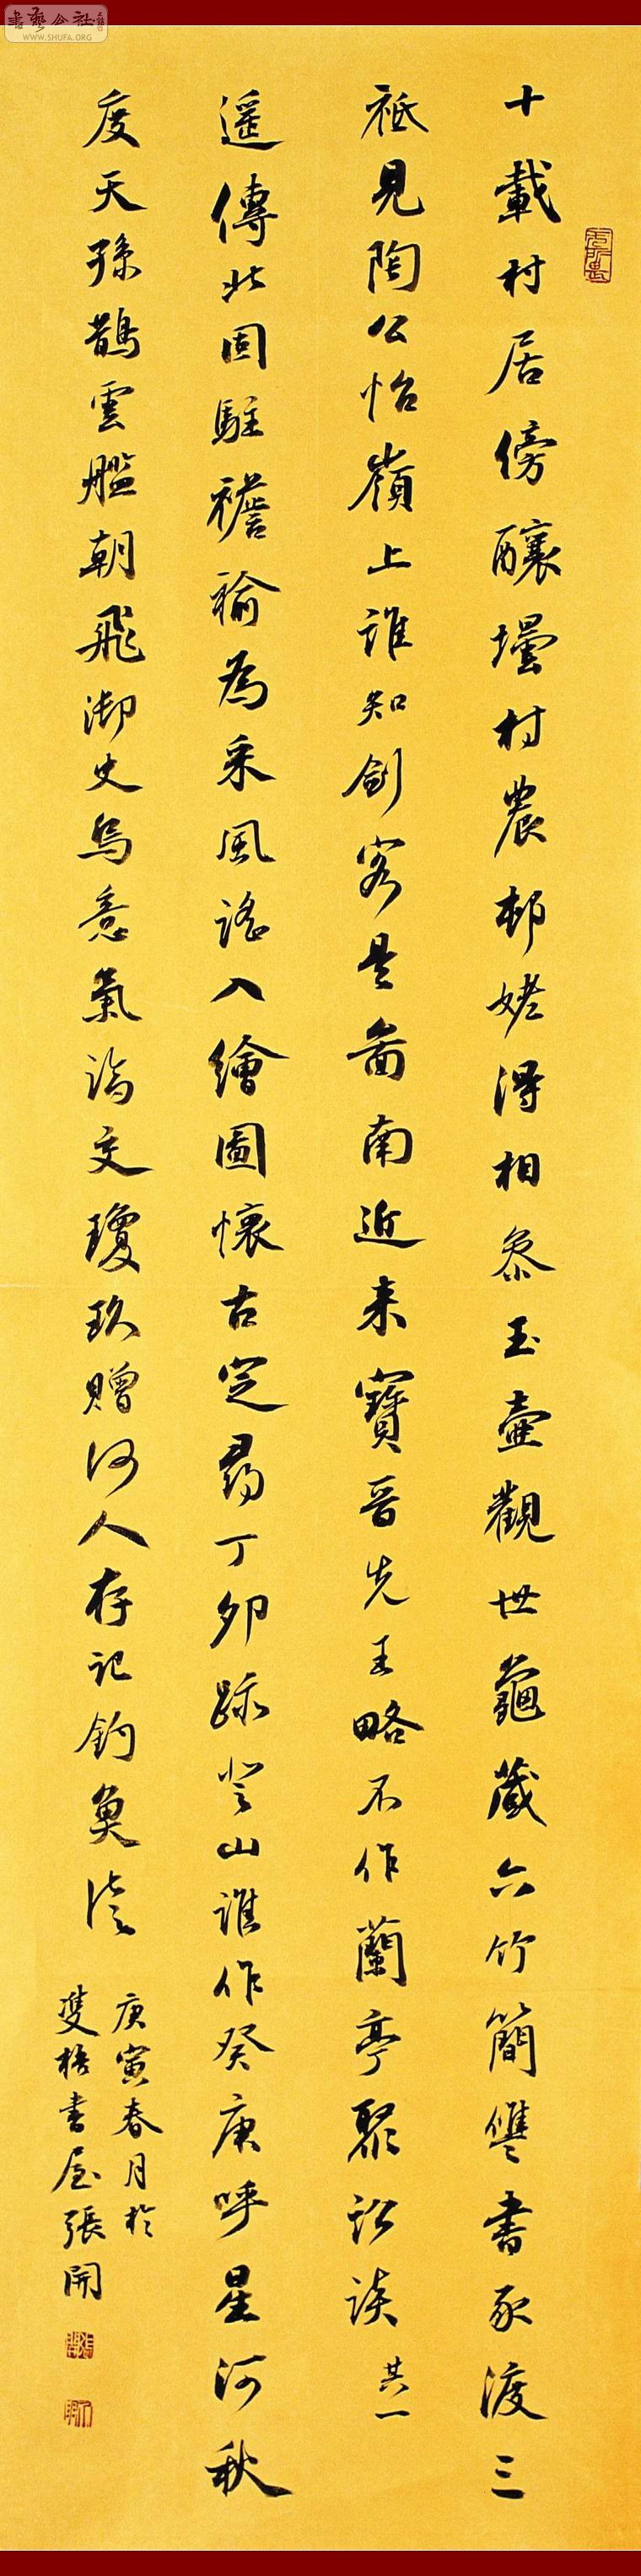 書藝公社
WWW.SHUFA.ORG
十載村居傍釀壜村農邨姥得相叅玉壺觀世龜藏六竹簡讐書豕渡三
祗見陶公怡嶺上誰知劍客是圖南近来寶晉先王略不作蘭亭聚訟談其一
遥傳北固駐襜褕為采風謠入繪圖懷古定尋丁卯跡登山誰作癸庚呼星河秋
度天孫鵲雲艦朝飛御史烏意氣論交瓊玖贈何人存記釣奠
庚寅春月於
雙梧書屋張開